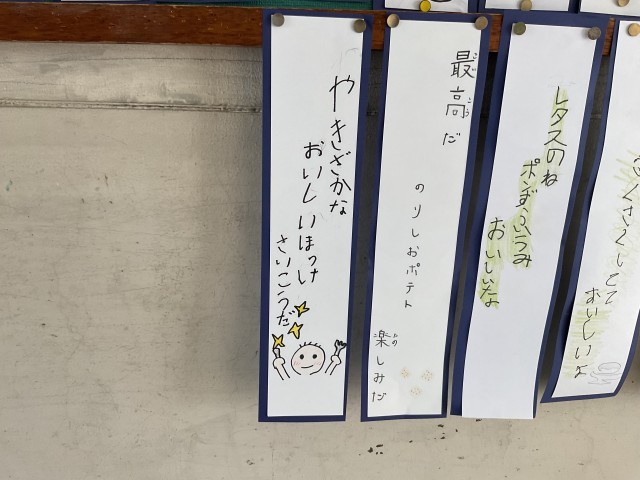 おいしいよ
レタスのね
ポンずふうみ
おいしいな
最高だ
のりしおポテト
楽しみだ
やきざかな
おいしいほっけ
さいこうだ